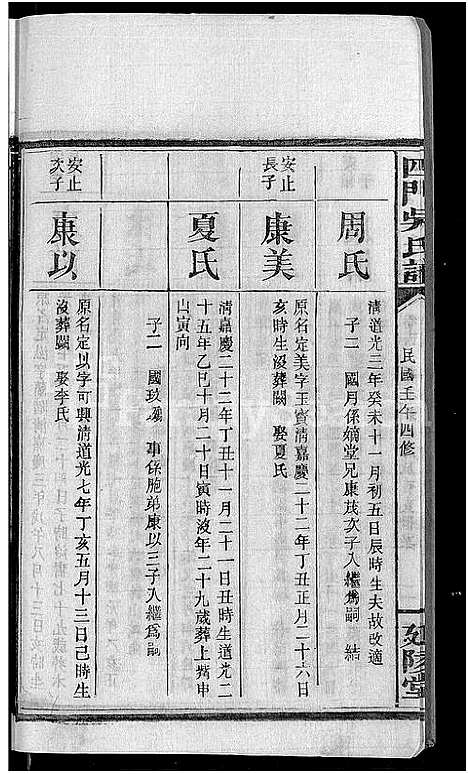 四門吳氏譜
民國壬午四修
延陵堂
周氏
清道光三年癸未十一月初五日辰時生夫故改適
子二 國月係嫡堂兄康茂次子入繼爲嗣 結
安止
長子
康美
原名定美字玉賓清嘉慶二十二年丁丑正月二十六日
亥時生沒葬闕 娶夏氏
夏氏
清嘉慶二十二年丁丑十一月二十一日丑時生道光二
十五年乙巳十月二十日寅時沒年二十九歲葬上灣申
山寅向
子二 國玖 事係胞弟康以三子入繼爲嗣
安止
次子
康以
原名定以字可興清道光七年丁亥五月十三日己時生
沒葬闕 娶李氏